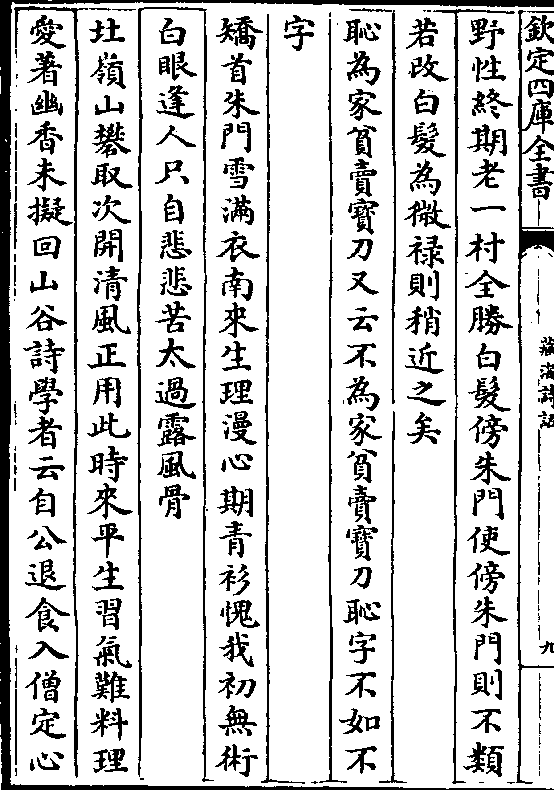 欽定四庫全書
藏海詩話
九
野性終期老一村全勝白髮傍朱門使傍朱門則不類
若改白髮為微禄則稍近之矣
恥為家貧賣寶刀又云不為家貧賣寶刀恥字不如不
字
矯首朱門雪滿衣南來生理漫心期青衫愧我初無術
白眼逢人只自悲悲苦太過露風骨
壮嶺山礬取次開清風正用此時來平生習氣難料理
愛著幽香未擬回山谷詩學者云自公退食入僧定心